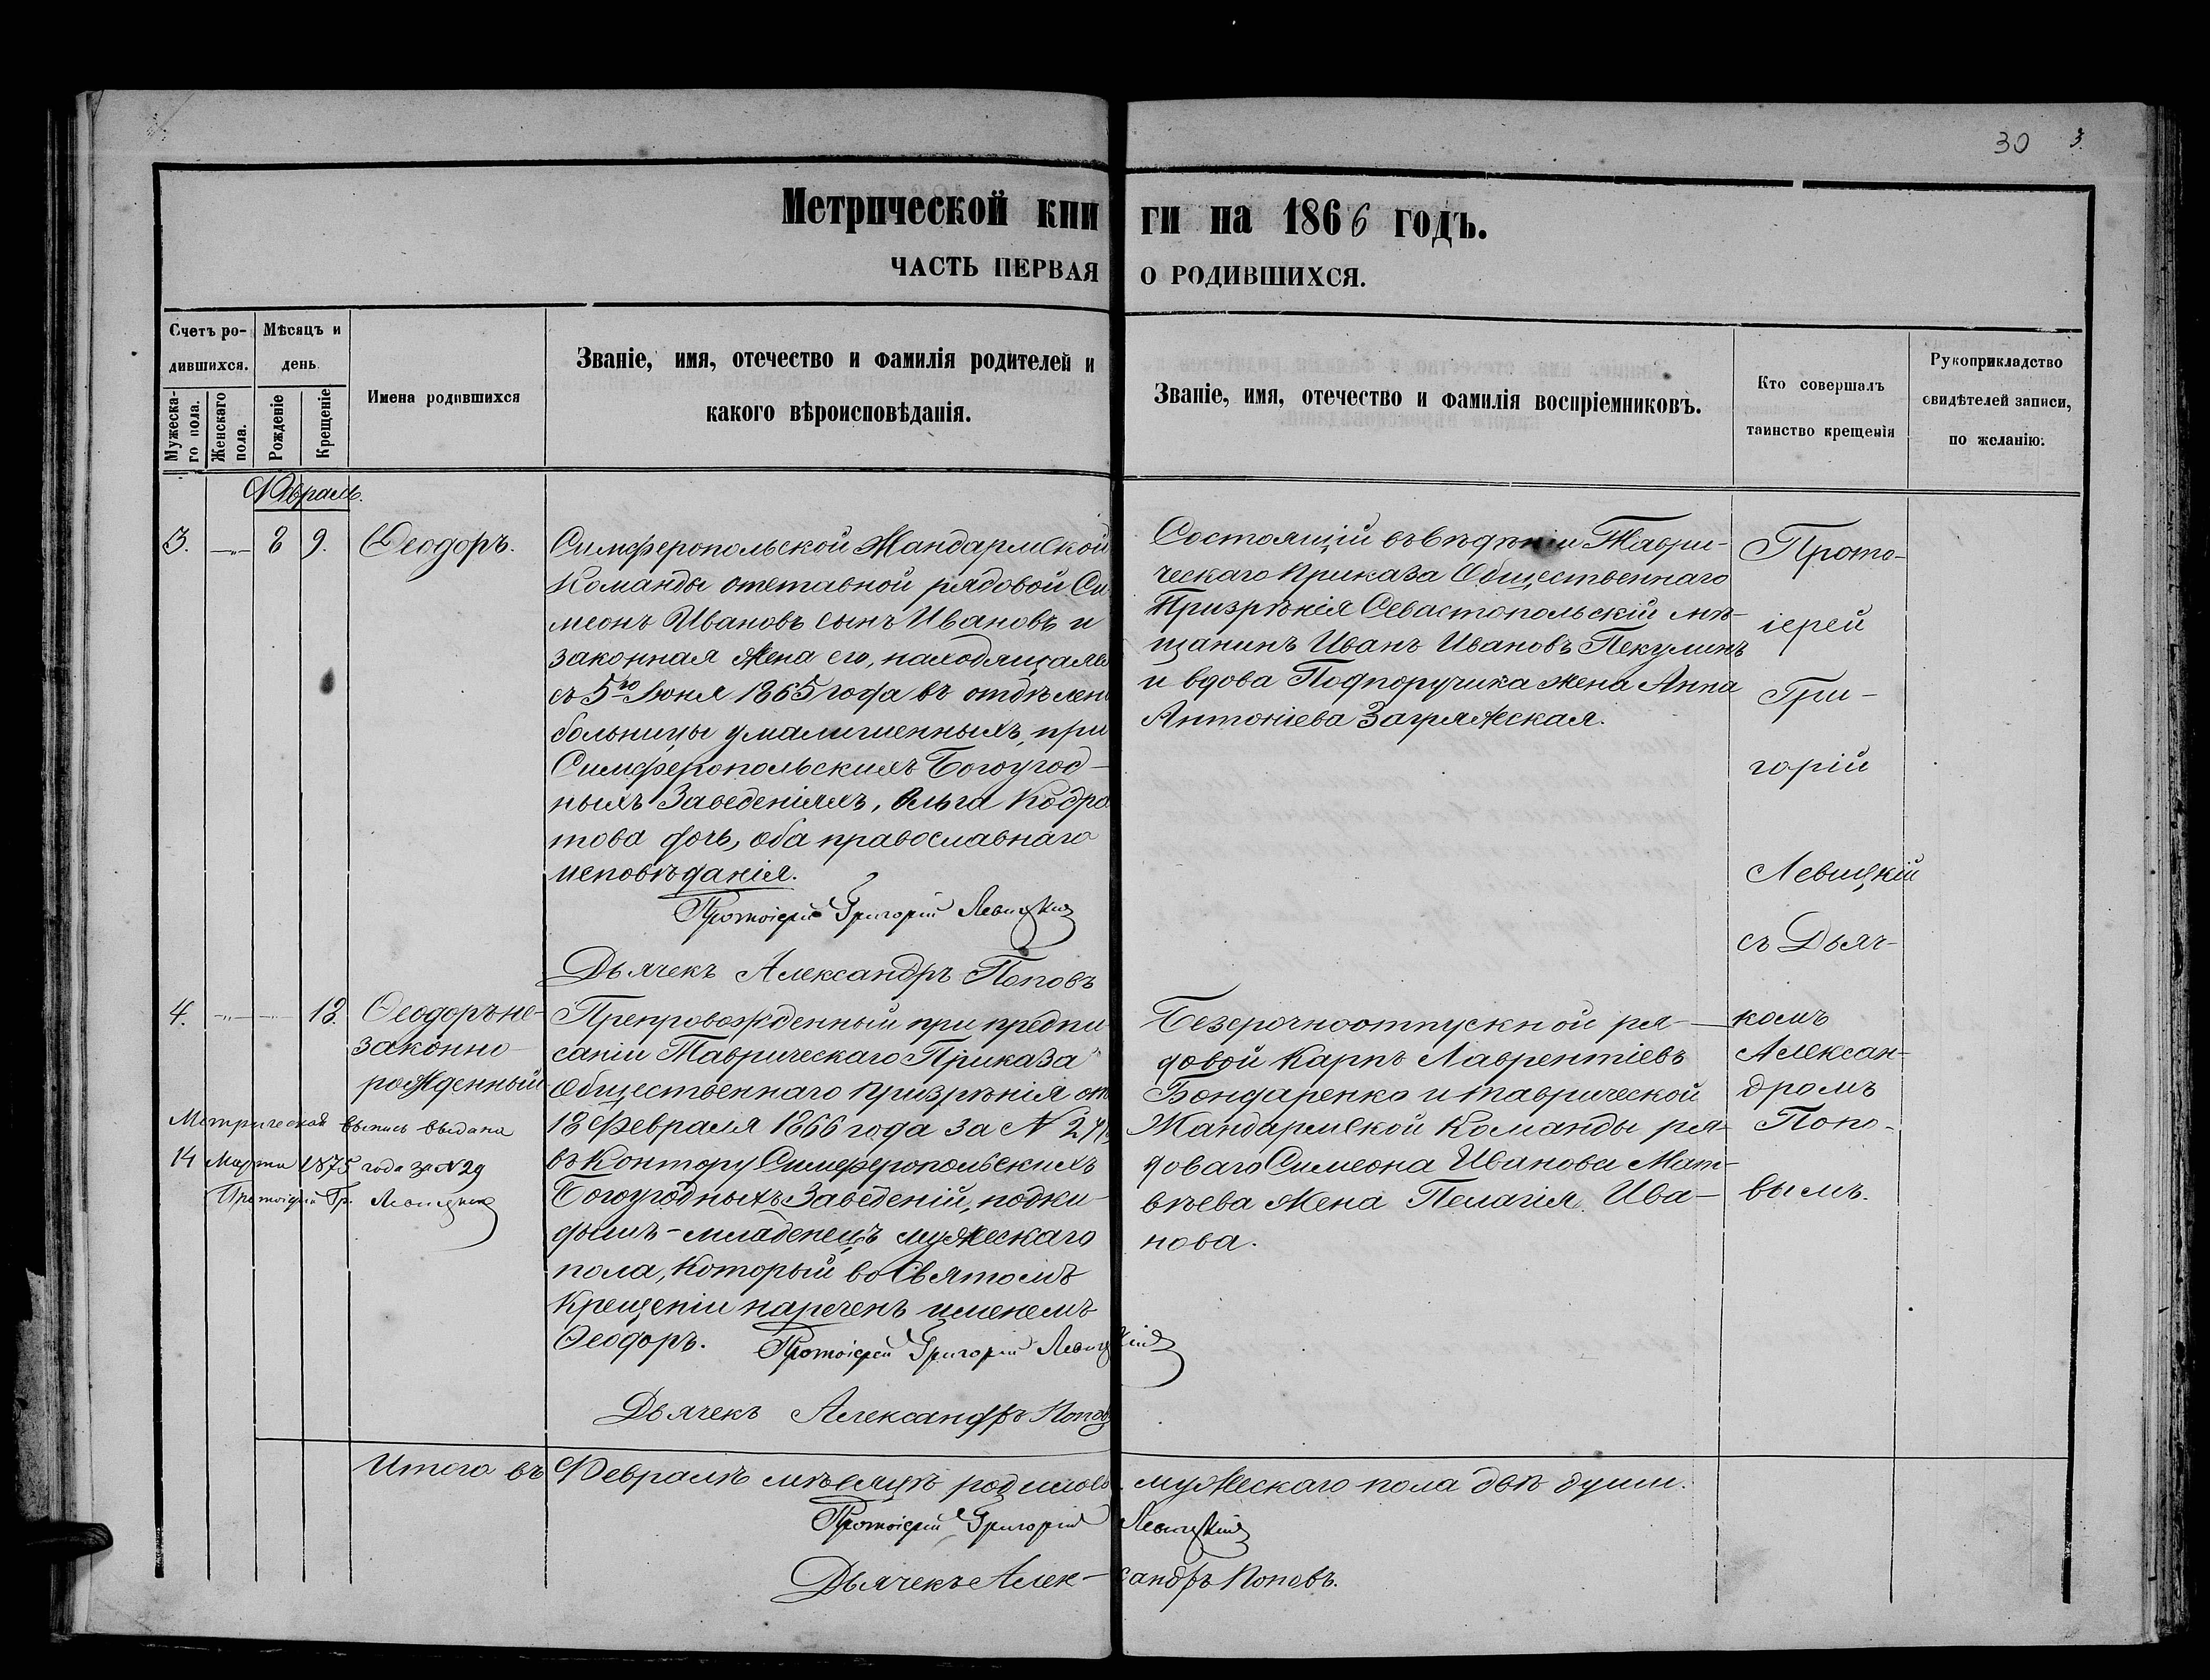 30 3.
Метрической кни ги на 1866 годъ.
ЧАСТЬ ПЕРВАЯ О РОДИВШИХСЯ.
Счетъ ро-
дившихся.
Мужеска-
го пола.
Женскаго
пола.
Мѣсяцъ и
день
Рожденіе
Крещеніе
Имена родившихся
Званіе, имя, отечество и фамилія родителей и
какого вѣроисповѣданія.
Званіе, имя, отечество и фамилія воспріемниковъ.
Кто совершалъ
таинство крещенія
Рукоприкладство
свидѣтелей записи,
по желанію.
3. —„— 8 9. Ѳеодоръ.
Симферопольской Жандармской
Команды отставной рядовой Си
меонъ Ивановъ сынъ Ивановъ и
законная жена его, находящаяся
съ 5го Іюня 1865 года въ отдѣлені
больницы умалишенныхъ, при
Симферопольскихъ Богоугод-
ныхъ Заведеніяхъ, Ольга Кодра
това дочь, оба православнаго
исповѣданія.
Протоіерей Григорій Левицкій
Дьячекъ Александръ Поповъ
Состоящій въ вѣдѣніи Таври-
ческаго Приказа Общественнаго
Призрѣнія Севастопольскій мѣ-
щанинъ Иванъ Ивановъ Пекулинъ
и вдова Подпоручика жена Анна
Антоніева Загряжская.
Прото-
іерей
Гри-
горій
Левицкій
съ Дьяч-
комъ
Алексан-
дромъ
Попо-
вымъ.
4. —„— — 18. Ѳеодоръ не-
законно-
рожденный
Метрическая выпись выдана
14 Марта 1875 года за № 29
Протоіерей Гр. Левицкій
Препровожденный при предпи
саніи Таврическаго Приказа
Общественнаго Призрѣнія отъ
18 Февраля 1866 года за №
въ Контору Симферопольскихъ
Богоугодныхъ Заведеній, подки-
дышъ-младенецъ мужескаго
пола, который во Святомъ
Крещеніи нареченъ именемъ
Ѳеодоръ. Протоіерей Григорій Левицкій
Дьячекъ Александръ Поповъ
Безсрочноотпускной ря-
довой Карпъ Лаврентіевъ
Бондаренко и Таврической
Жандармской Команды ря-
доваго Симеона Иванова Мат-
вѣева жена Пелагія Ива-
нова.
Итого въ Февралѣ мѣсяцѣ родилось мужескаго пола двѣ души.
Протоіерей Григорій Левицкій
Дьячекъ Алек-сандръ Поповъ.